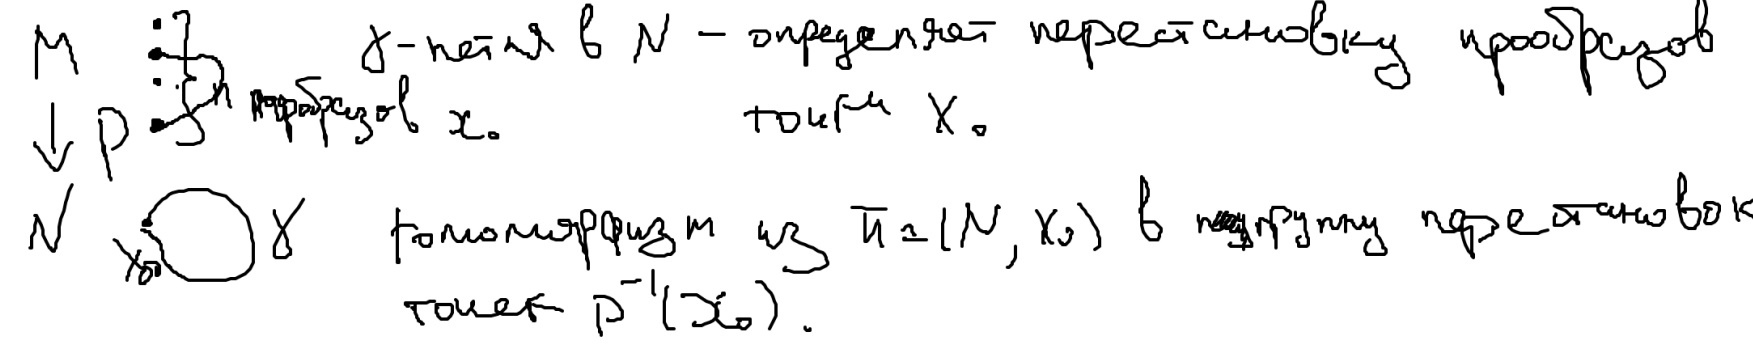 M γ-петля в N - определяет перестановку прообразов
↓ p n прообразов x₀ точки X₀
N x₀ γ гомоморфизм из π₁(N, x₀) в группу перестановок
точек p⁻¹(x₀).